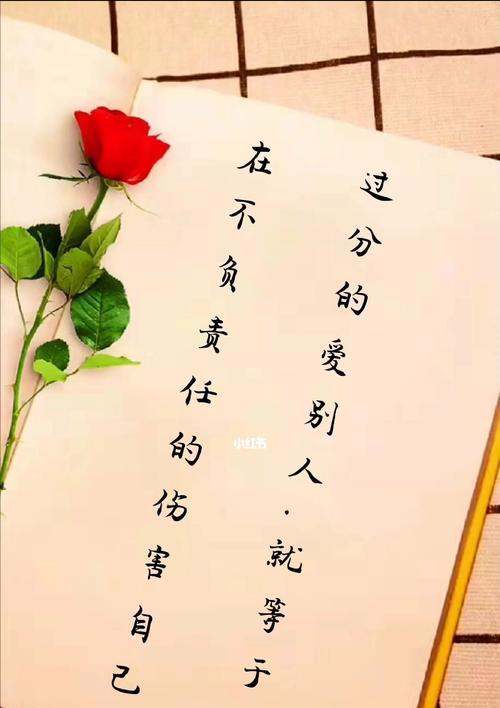 过分的爱别人·就等于
在不负责任的伤害自己
小红书